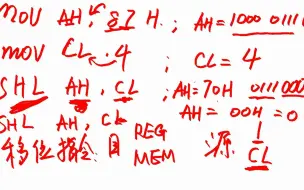 MOV AH, 87H. ; AH=1000 0111
MOV CL, 4 ; CL=4
SHL AH, CL ; AH=70H 0111000
SHL AH, CL AH=00H=0
移位指令 目 REG MEM 源 1 CL